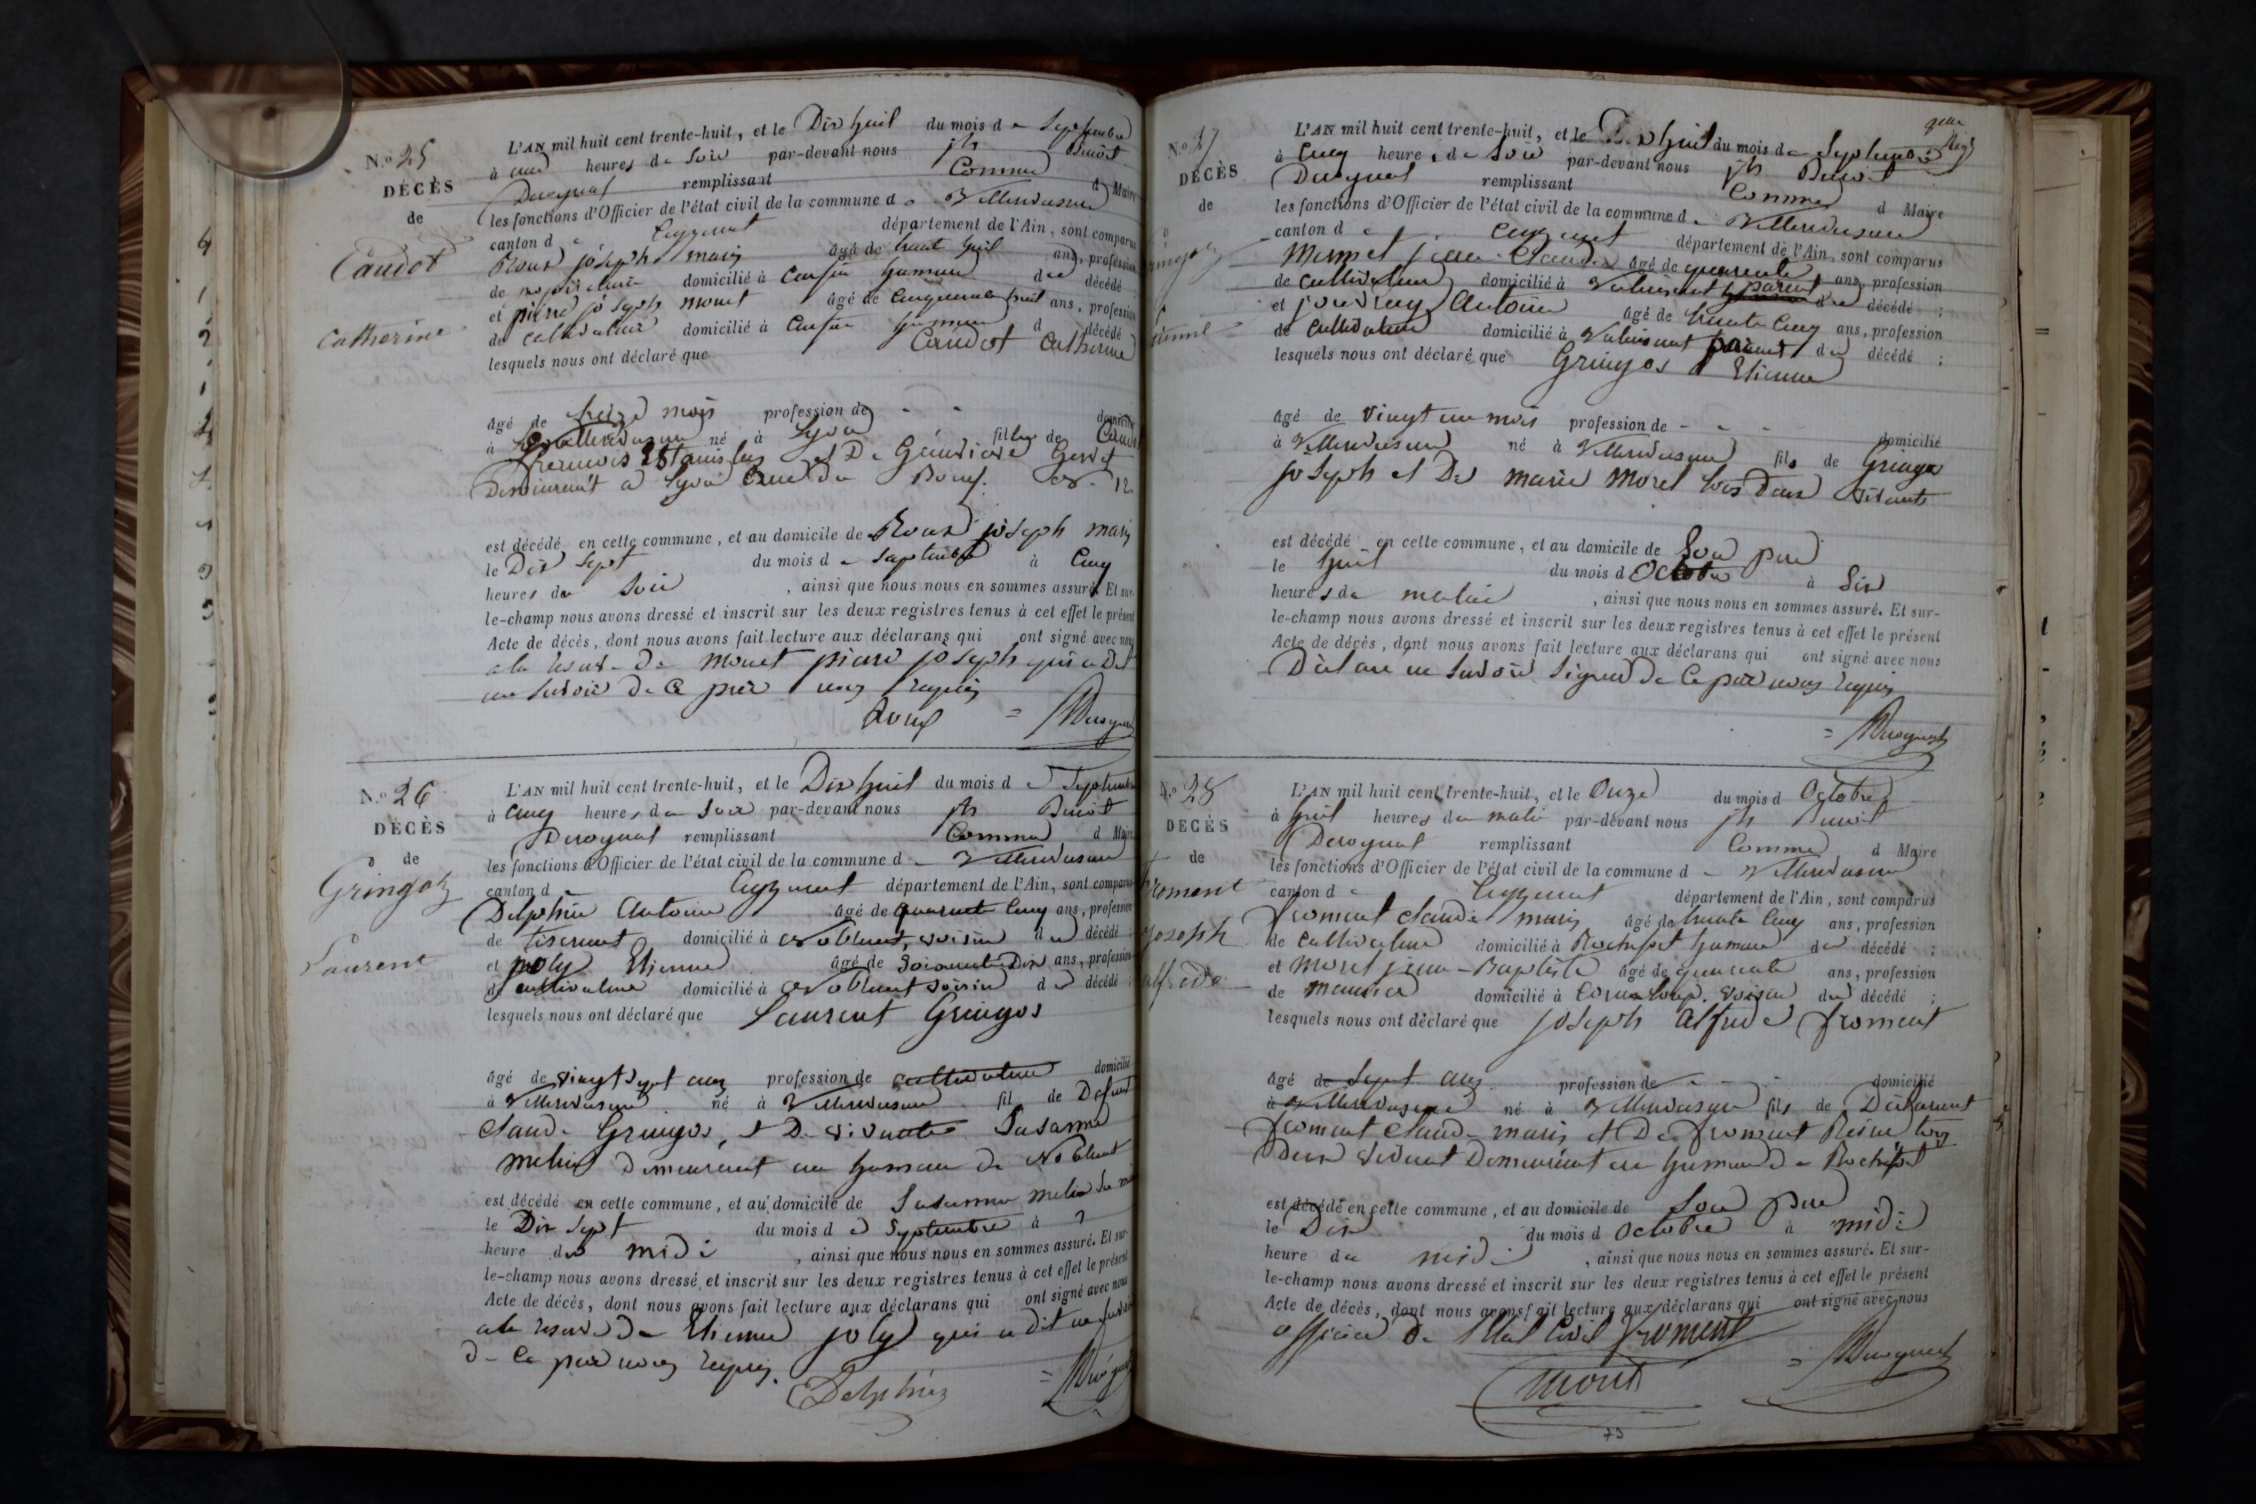 N.o 25
DÉCÈS
de
Caudot
Catherine
L'AN mil huit cent trente-huit, et le Dix huit du mois de Septembre
à cinq heures du soir par-devant nous jh Benoit
Duroquat remplissant Comme d Maire
les fonctions d'Officier de l'état civil de la commune de Villereversure
canton de Ceyzeriat département de l'Ain, sont comparus
Roux joseph marie âgé de trente huit ans, profession
de domicilié à hameau du décédé
et pierre joseph monet âgé de cinquante huit ans, profession
de cultivateur domicilié à hameau d décédé
lesquels nous ont déclaré que Caudot Catherine
âgé de treize mois profession de - - domicilié
à Villereversure né à Lyon fille de
Stanislas et De Gerret
Demeurant à Lyon rue du Boeuf 12
est décédé en cette commune, et au domicile de Roux joseph marie
le Dix Sept du mois de septembre à cinq
heures du soir, ainsi que nous nous en sommes assuré. Et sur-
le-champ nous avons dressé et inscrit sur les deux registres tenus à cet effet le présent
Acte de décès, dont nous avons fait lecture aux déclarans qui ont signé avec nous
a la de monet pierre joseph qui a dit
ne savoir de ce par nous requis
Roux = Duroquat
N.o 26
DÉCÈS
de
Gringoz
Laurent
L'AN mil huit cent trente-huit, et le Dix huit du mois de Septembre
à cinq heures du soir par-devant nous jh Benoit
Duroquat remplissant Comme d Maire
les fonctions d'Officier de l'état civil de la commune de Villereversure
canton de Ceyzeriat département de l'Ain, sont comparus
Delphin Antoine âgé de quarante cinq ans, profession
de tiserant domicilié à Noblens, voisin du décédé
et joly Etienne âgé de soixante Dix ans, profession
de cultivateur domicilié à voisin du décédé
lesquels nous ont déclaré que Laurent Gringos
âgé de vingt sept ans profession de cultivateur domicilié
à Villereversure né à Villereversure fil de Defunt
Claude Gringos, et De vivante Susanne
demeurant au hameau de
est décédé en cette commune, et au domicile de Susanne
le Dix Sept du mois de Septembre à
heure du midi, ainsi que nous nous en sommes assuré. Et sur-
le-champ nous avons dressé et inscrit sur les deux registres tenus à cet effet le présent
Acte de décès, dont nous avons fait lecture aux déclarans qui ont signé avec nous
a la de Etienne joly qui a dit ne savoir
de ce par nous requis.
Delphin = Duroquat
N.o 27
DÉCÈS
de
L'AN mil huit cent trente-huit, et le Dix huit du mois de Septembre
à cinq heures du soir par-devant nous jh Benoit
Duroquat remplissant Comme d Maire
les fonctions d'Officier de l'état civil de la commune de Villereversure
canton de Ceyzeriat département de l'Ain, sont comparus
jean Claude âgé de quarante ans, profession
de cultivateur domicilié à parent du décédé;
et Antoine âgé de trente cinq ans, profession
de cultivateur domicilié à parent du décédé;
lesquels nous ont déclaré que Gringos Etienne
âgé de vingt un mois profession de - - - domicilié
à Villereversure né à Villereversure fils de Gringos
joseph et De marie morel tous Deux vivants
est décédé en cette commune, et au domicile de son pere
le huit du mois d Octobre à Six
heures du matin, ainsi que nous nous en sommes assuré. Et sur-
le-champ nous avons dressé et inscrit sur les deux registres tenus à cet effet le présent
Acte de décès, dont nous avons fait lecture aux déclarans qui ont signé avec nous
Déclare ne savoir signer de ce par nous requis
= Duroquat
N.o 28
DÉCÈS
de
froment
joseph
alfrede
L'AN mil huit cent trente-huit, et le Onze du mois d Octobre
à huit heures du matin par-devant nous jh Benoit
Duroquat remplissant Comme d Maire
les fonctions d'Officier de l'état civil de la commune de Villereversure
canton de Ceyzeriat département de l'Ain, sont comparus
froment claude marie âgé de trente cinq ans, profession
de cultivateur domicilié à Rochefort hameau du décédé;
et morel jean-Baptiste âgé de quarante ans, profession
de domicilié à voisin du décédé;
lesquels nous ont déclaré que joseph alfrede froment
âgé de sept ans profession de - - - domicilié
à Villereversure né à Villereversure fils de Déclarant
froment claude marie et De froment Reine tous
Deux vivant Demeurant au hameau de Rochefort
est décédé en cette commune, et au domicile de son pere
le Dix du mois d Octobre à midi
heure du midi, ainsi que nous nous en sommes assuré. Et sur-
le-champ nous avons dressé et inscrit sur les deux registres tenus à cet effet le présent
Acte de décès, dont nous avons fait lecture aux déclarans qui ont signé avec nous
officier de l'Etat Civil froment
= Duroquat
73